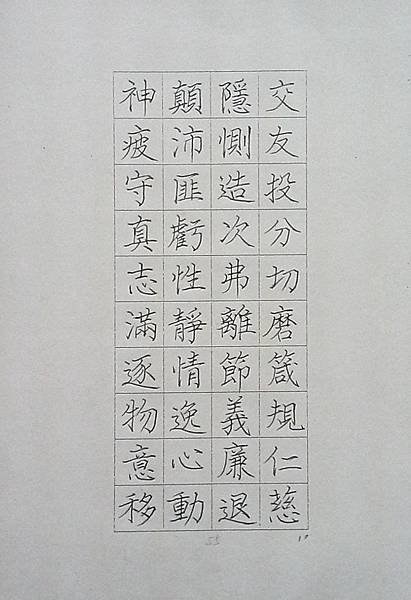 交友投分切磨箴規仁慈
隱惻造次弗離節義廉退
顛沛匪虧性靜情逸心動
神疲守真志滿逐物意移
55